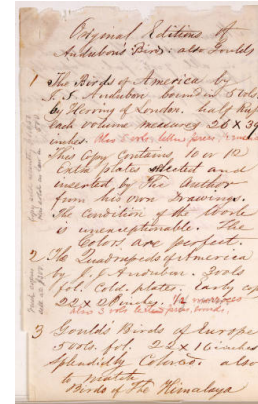 Original Editions of
Audubon's Birds. also Goulds
1 The Birds of America by
J. J. Audubon bound in 5 vols.
by Herring of London. half
each volume measures 26 x 39
inches. Also 5 vols. letter press,
This Copy Contains 10 or 12
Extra plates selected and
inserted by The Author
from his own Drawings.
The Condition of the work
is unexceptionable. The
Colors are perfect.
2 The Quadrupeds of America
by J. J. Audubon. 2 vols
fol. Cold. plates. early cop
22 x 28 inches. 1/2 morocco
also 3 vols letter press, bound.
3 Goulds Birds of Europe
5 vols. fol. 22 x 16 inches
Splendidly Colored. also
to match
Birds of The Himalaya